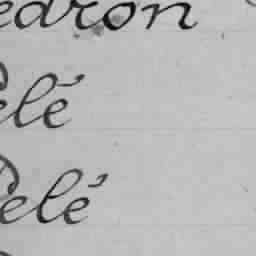 edron
elé
elé